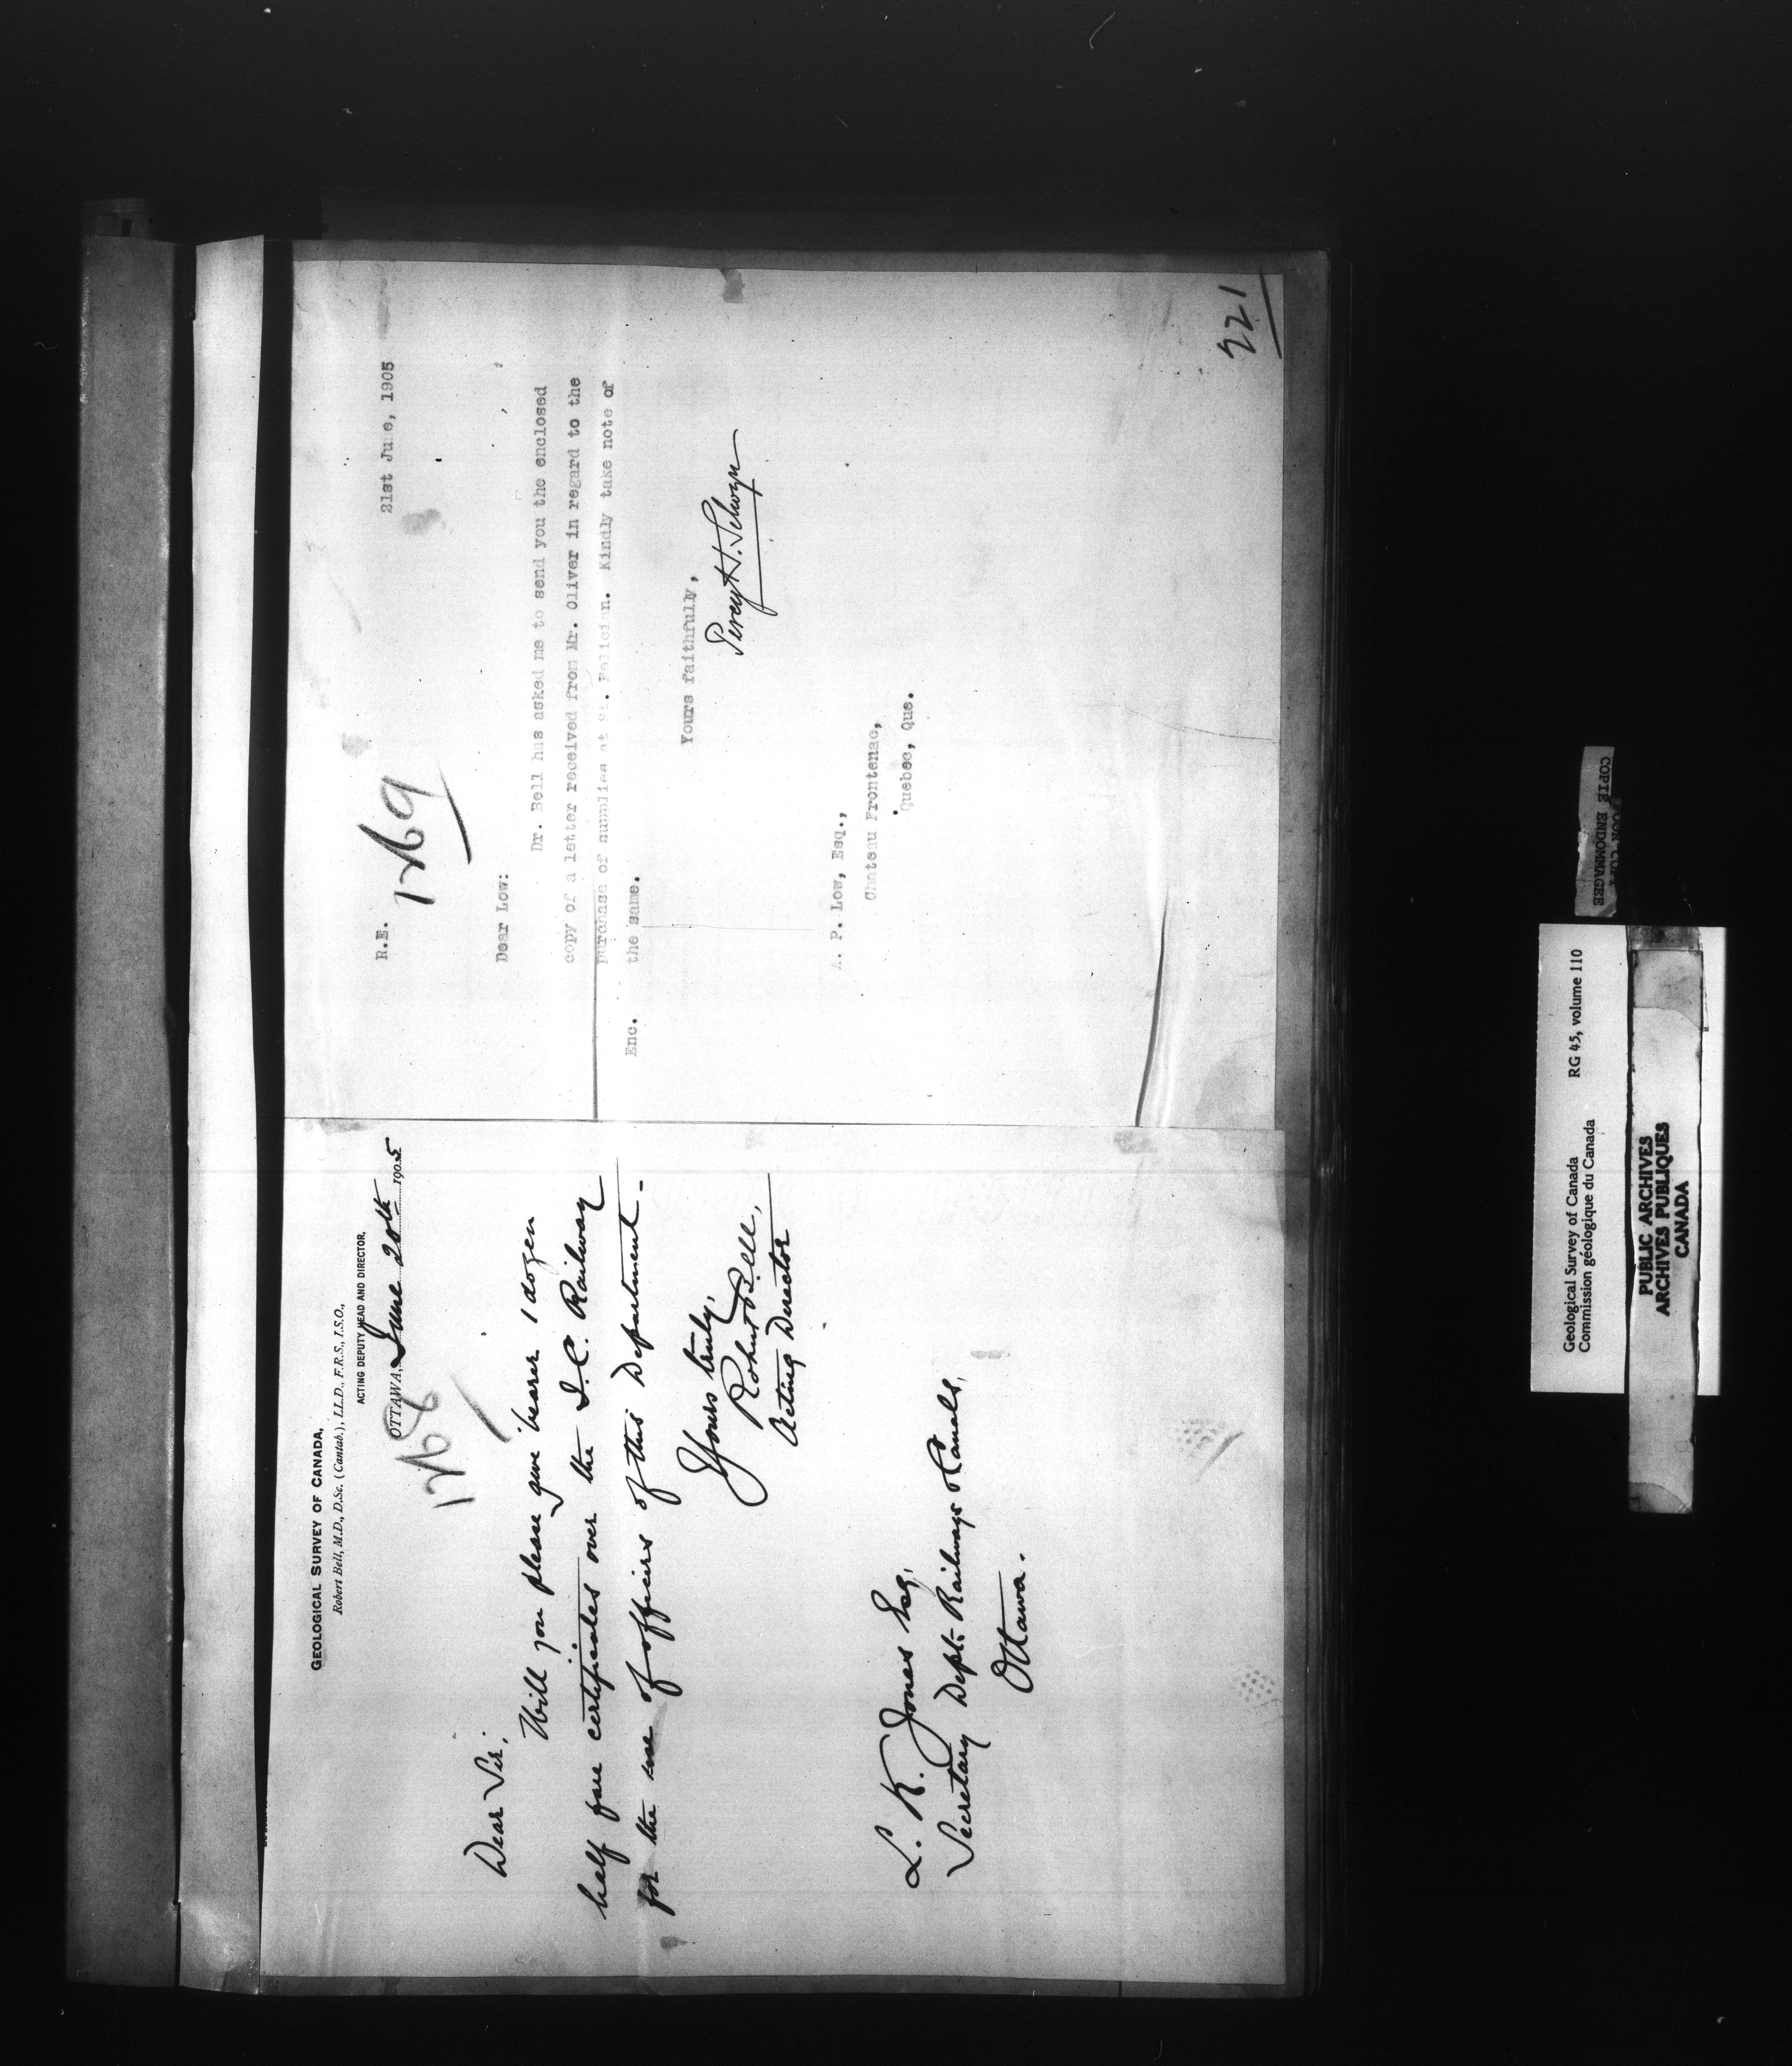 GEOLOGICAL SURVEY OF CANADA,
Robert Bell, M.D., D.Sc. (Cantab.), LL.D., F.R.S., I.S.O.,
ACTING DEPUTY HEAD AND DIRECTOR,
OTTAWA, June 20th 1905
1268
Dear Sir,
Will you please give bearer 1 dozen
half fare certificates over the I.C. Railway
for the use of officers of this Department.
Yours truly,
Robert Bell,
Acting Director
L. K. Jones Esq,
Secretary Dept. Railways & Canals,
Ottawa.
R.E.
21st Ju e, 1905
1269
Dear Low:
Dr. Bell has asked me to send you the enclosed
copy of a letter received from Mr. Oliver in regard to the
purchase of supplies at St. Felicien. Kindly take note of
the same.
Enc.
Yours faithfully,
Percy H. Selwyn
A. P. Low, Esq.,
Chateau Frontenac,
Quebec, Que.
221
Geological Survey of Canada RG 45, volume 110
Commission géologique du Canada
PUBLIC ARCHIVES
ARCHIVES PUBLIQUES
CANADA
COPIE ENDOMMAGEE